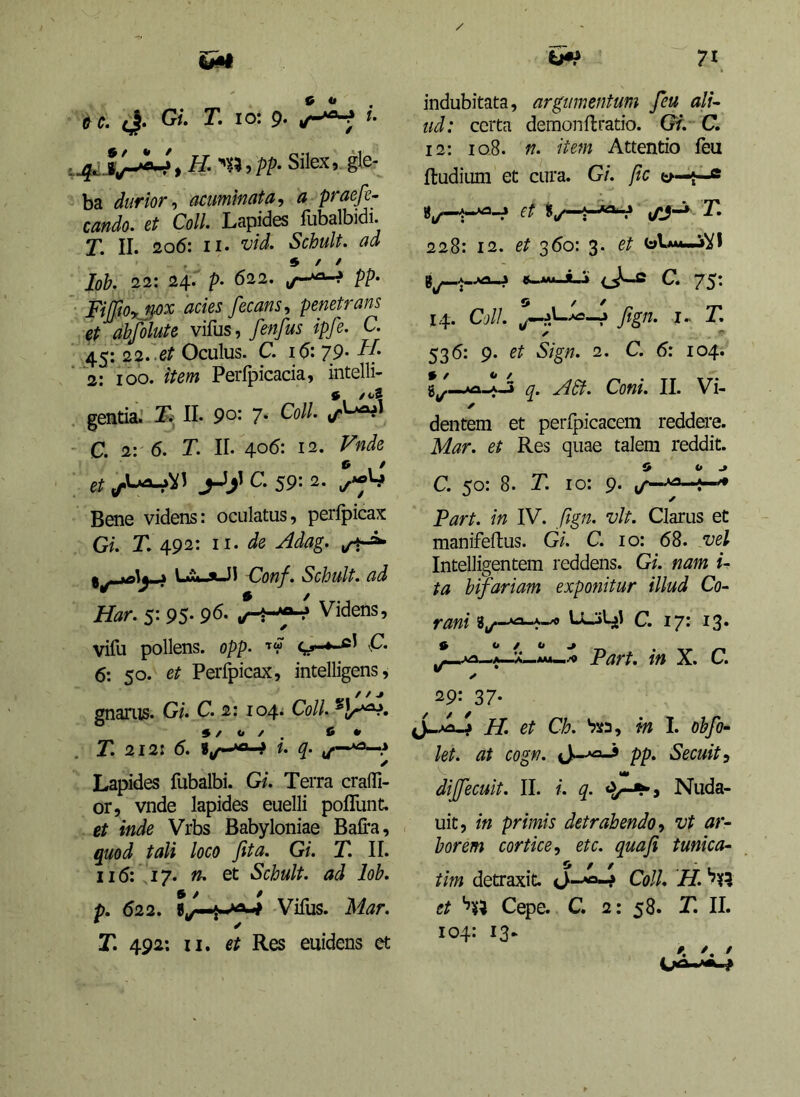 بص
e c. ق. Gi. T. 10: 9. بُصْرٌ i.
q. بَصْرَةٌ, H. צר, pp. Silex, gle-
ba durior, acuminata, a praeſe-
cando. et Coll. Lapides ſubalbidi.
T. II. 206: 11. vid. Schult. ad
Iob. 22: 24. p. 622. بَصَرٌ pp.
Fiſſio, nox acies ſecans, penetrans
et abſolute viſus, ſenſus ipſe. C.
45: 22. et Oculus. C. 16: 79. H.
2: 100. item Perſpicacia, intelli-
gentia. T. II. 90: 7. Coll. أَبْصَارٌ
C. 2: 6. T. II. 406: 12. Vnde
et أولو الابصار C. 59: 2. بَاصِرٌ
Bene videns: oculatus, perſpicax
Gi. T. 492: 11. de Adag. خير
الغدا بواصره Conf. Schult. ad
Har. 5: 95. 96. بَصِيرٌ Videns,
viſu pollens. opp. τῷ اعمى C.
6: 50. et Perſpicax, intelligens,
gnarus. Gi. C. 2: 104. Coll. بُصَرَاءُ
T. 212: 6. بَصْرَةٌ i. q. بُصْرٌ
Lapides ſubalbi. Gi. Terra craſſi-
or, vnde lapides euelli poſſunt.
et inde Vrbs Babyloniae Baſra,
quod tali loco ſita. Gi. T. II.
116: 17. n. et Schult. ad Iob.
p. 622. بَصِيرَةٌ Viſus. Mar.
T. 492: 11. et Res euidens et
بص 71
indubitata, argumentum ſeu ali-
ud: certa demonſtratio. Gi. C.
12: 108. n. item Attentio ſeu
ſtudium et cura. Gi. ſic عين
بصيرة et ذوى بصيرة T.
228: 12. et 360: 3. et الانسان
على نفسه بصيرة C. 75:
14. Coll. بَصَائِرُ ſign. 1. T.
536: 9. et Sign. 2. C. 6: 104.
تَبْصِرَةٌ q. Act. Coni. II. Vi-
dentem et perſpicacem reddere.
Mar. et Res quae talem reddit.
C. 50: 8. T. 10: 9. مُبْصِرٌ
Part. in IV. ſign. vlt. Clarus et
manifeſtus. Gi. C. 10: 68. vel
Intelligentem reddens. Gi. nam i-
ta bifariam exponitur illud Co-
rani اياتنا مبصرة C. 17: 13.
مُسْتَبْصِرٌ Part. in X. C.
29: 37.
بَصَلَ H. et Ch. בצל, in I. obſo-
let. at cogn. فصل pp. Secuit,
diſſecuit. II. i. q. جرّد, Nuda-
uit, in primis detrahendo, vt ar-
borem cortice, etc. quaſi tunica-
tim detraxit. بَصَلٌ Coll. H. בצל
et בצל Cepe. C. 2: 58. T. II.
104: 13.